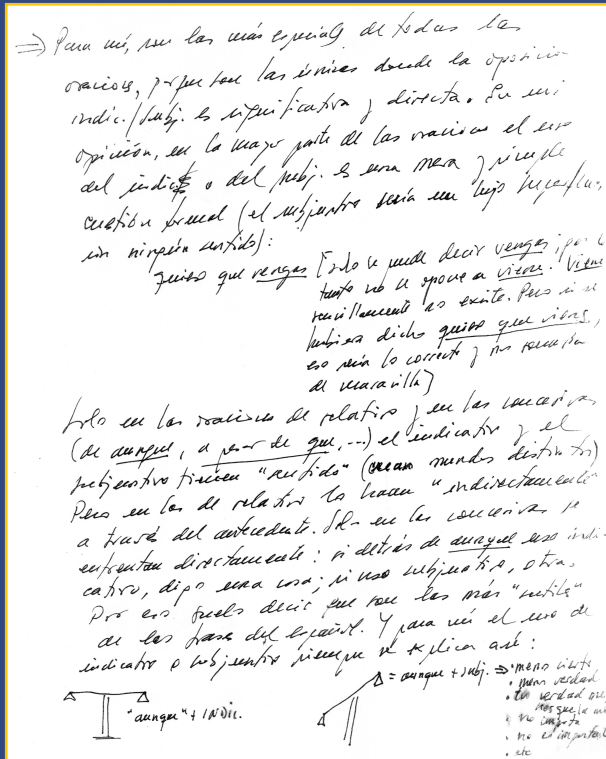 ⇒ Para mí, son las más especiales de todas las
oraciones, porque son las únicas donde la oposición
indic./subj. es significativa y directa. En mi
opinión, en la mayor parte de las oraciones el uso
del indic. o del subj. es una mera y simple
cuestión formal (el subjuntivo sería un lujo superfluo,
sin ningún sentido):
quiero que vengas [solo se puede decir vengas; por lo
tanto no se opone a vienes. Vienes
sencillamente no existe. Pero si se
hubiera dicho quiero que vienes,
eso sería lo correcto y nos sonaría
de maravilla]
Solo en las oraciones de relativo y en las concesivas
(de aunque, a pesar de que, ...) el indicativo y el
subjuntivo tienen "sentido" (crean mundos distintos)
Pero en las de relativo lo hacen "indirectamente"
a través del antecedente. Solo en las concesivas se
enfrentan directamente: si detrás de aunque uso indi-
cativo, digo una cosa; si uso subjuntivo, otra.
Por eso suelo decir que son las más "sutiles"
de las frases del español. Y para mí el uso de
indicativo o subjuntivo siempre se explica así:
"aunque" + INDIC.
= aunque + subj. ⇒ • menos cierto
• menos verdad
• tu verdad me
• no importa
• no es importante
• etc